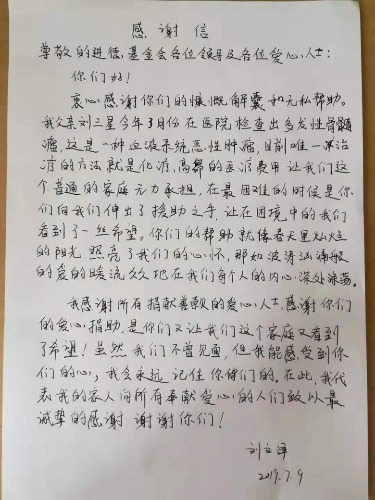 感谢信
尊敬的进德基金会各位领导及各位爱心人士：
你们好！
衷心感谢你们的慷慨解囊和无私帮助。
我父亲刘三星今年3月份在医院检查出多发性骨髓
瘤，这是一种血液系统恶性肿瘤，目前唯一
疗的方法就是化疗，高昂的医疗费用让我们这
个普通的家庭无力承担，在最困难的时候是你
们向我们伸出了援助之手，让在困境中的我们
看到了一丝希望。你们的帮助就像春天里灿烂
的阳光，照亮了我们的心怀，那如波涛汹涌般
的爱的暖流久久地在我们每个人的内心深处涤荡。
我感谢所有捐献善款的爱心人士，感谢你们
的爱心捐助，是你们又让我们这个家庭又看到
了希望！虽然我们不曾见面，但我能感受到你
们的心，我会永远记住你们的。在此，我代
表我的家人向所有奉献爱心的人们致以最
诚挚的感谢 谢谢你们！
刘文泽
2019.7.9